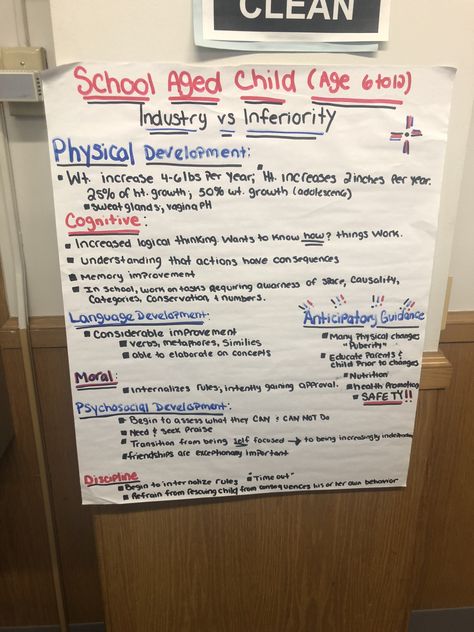 CLEAN
School Aged Child (Age 6 to 12)
Industry vs Inferiority
Physical Development:
Wt. increase 4-6lbs per year, Ht. increases 2 inches per year.
25% of ht. growth; 50% wt. growth (adolescence)
sweat glands, vagina pH
Cognitive:
Increased logical thinking. Wants to know how? things work.
Understanding that actions have consequences
Memory improvement
In school, work on tasks requiring awarness of space, causality,
categories, conservation, & numbers.
Language Development:
Considerable improvement
verbs, metaphores, similies
able to elaborate on concepts
Anticipatory Guidance
Many Physical changes
"Puberity"
Educate Parents &
child Prior to changes
Nutrition
health Promotion
SAFETY!!
Moral:
Internalizes rules, intently gaining approval.
Psychosocial Development:
Begin to assess what they CAN & CAN NOT DO
Need & seek Praise
Transition from being self focused → to being increasingly
friendships are exceptionally important
Discipline
Begin to internalize rules "Time out"
Refrain from rescuing child from consequences his or her own behavior